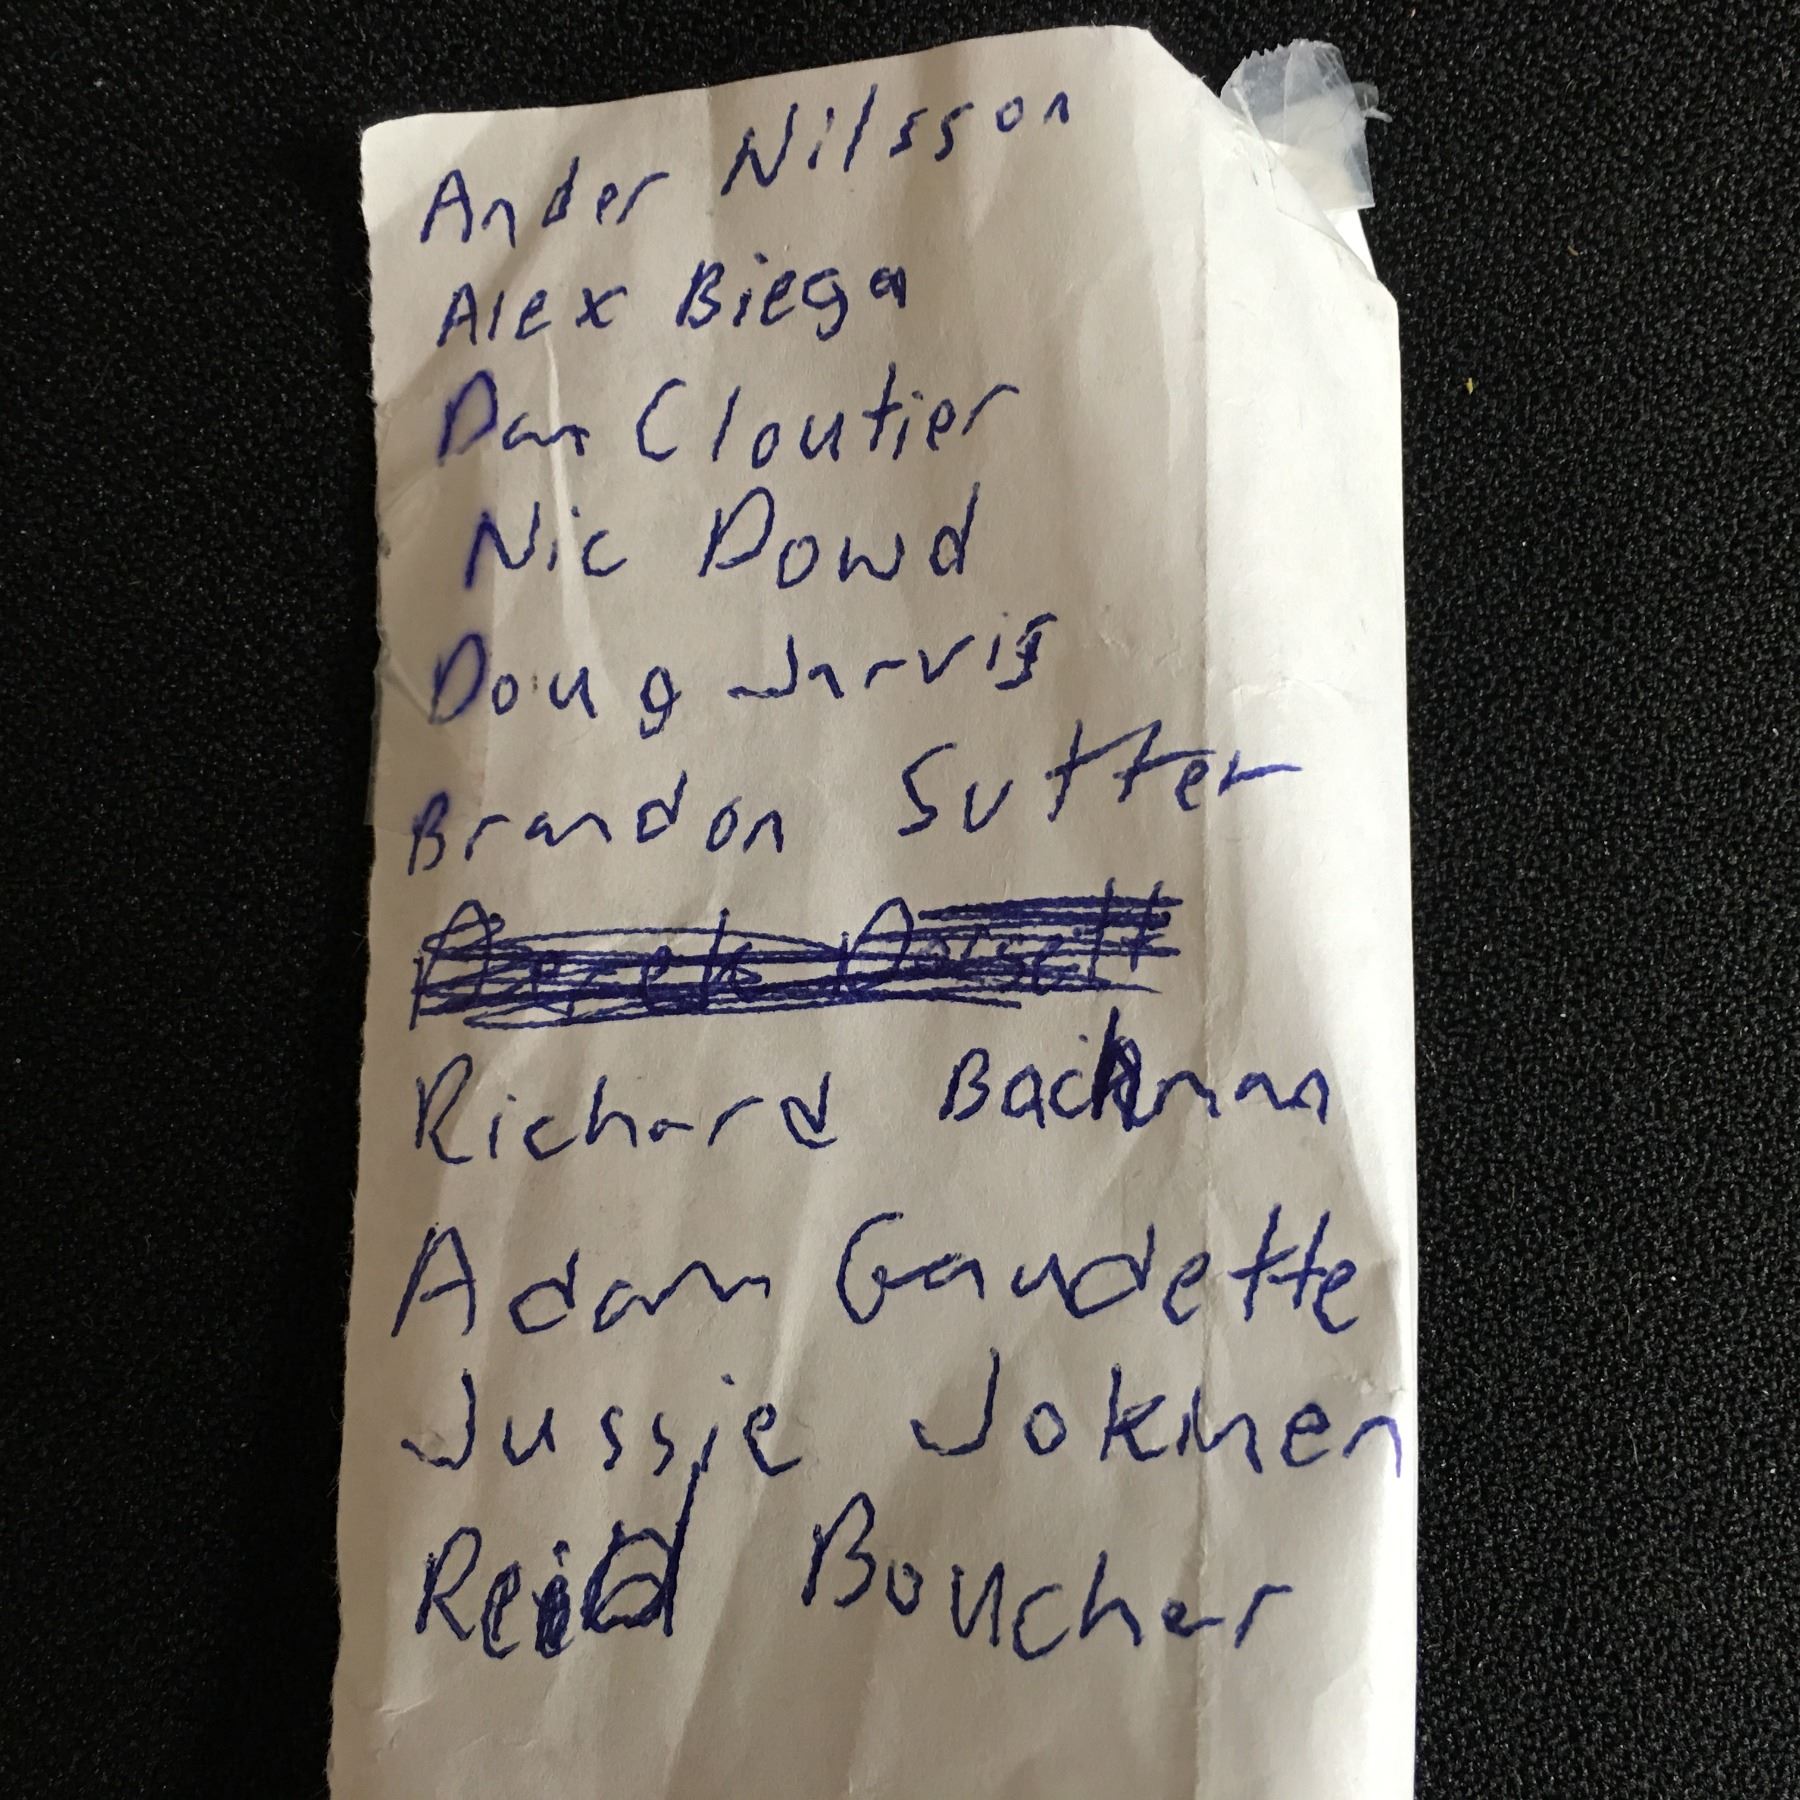 Ander Nilsson
Alex Biega
Dan Cloutier
Nic Dowd
Doug Jarvis
Brandon Sutter
Derek Dorsett
Richard Bachman
Adam Gaudette
Jussie Jokinen
Reid Boucher